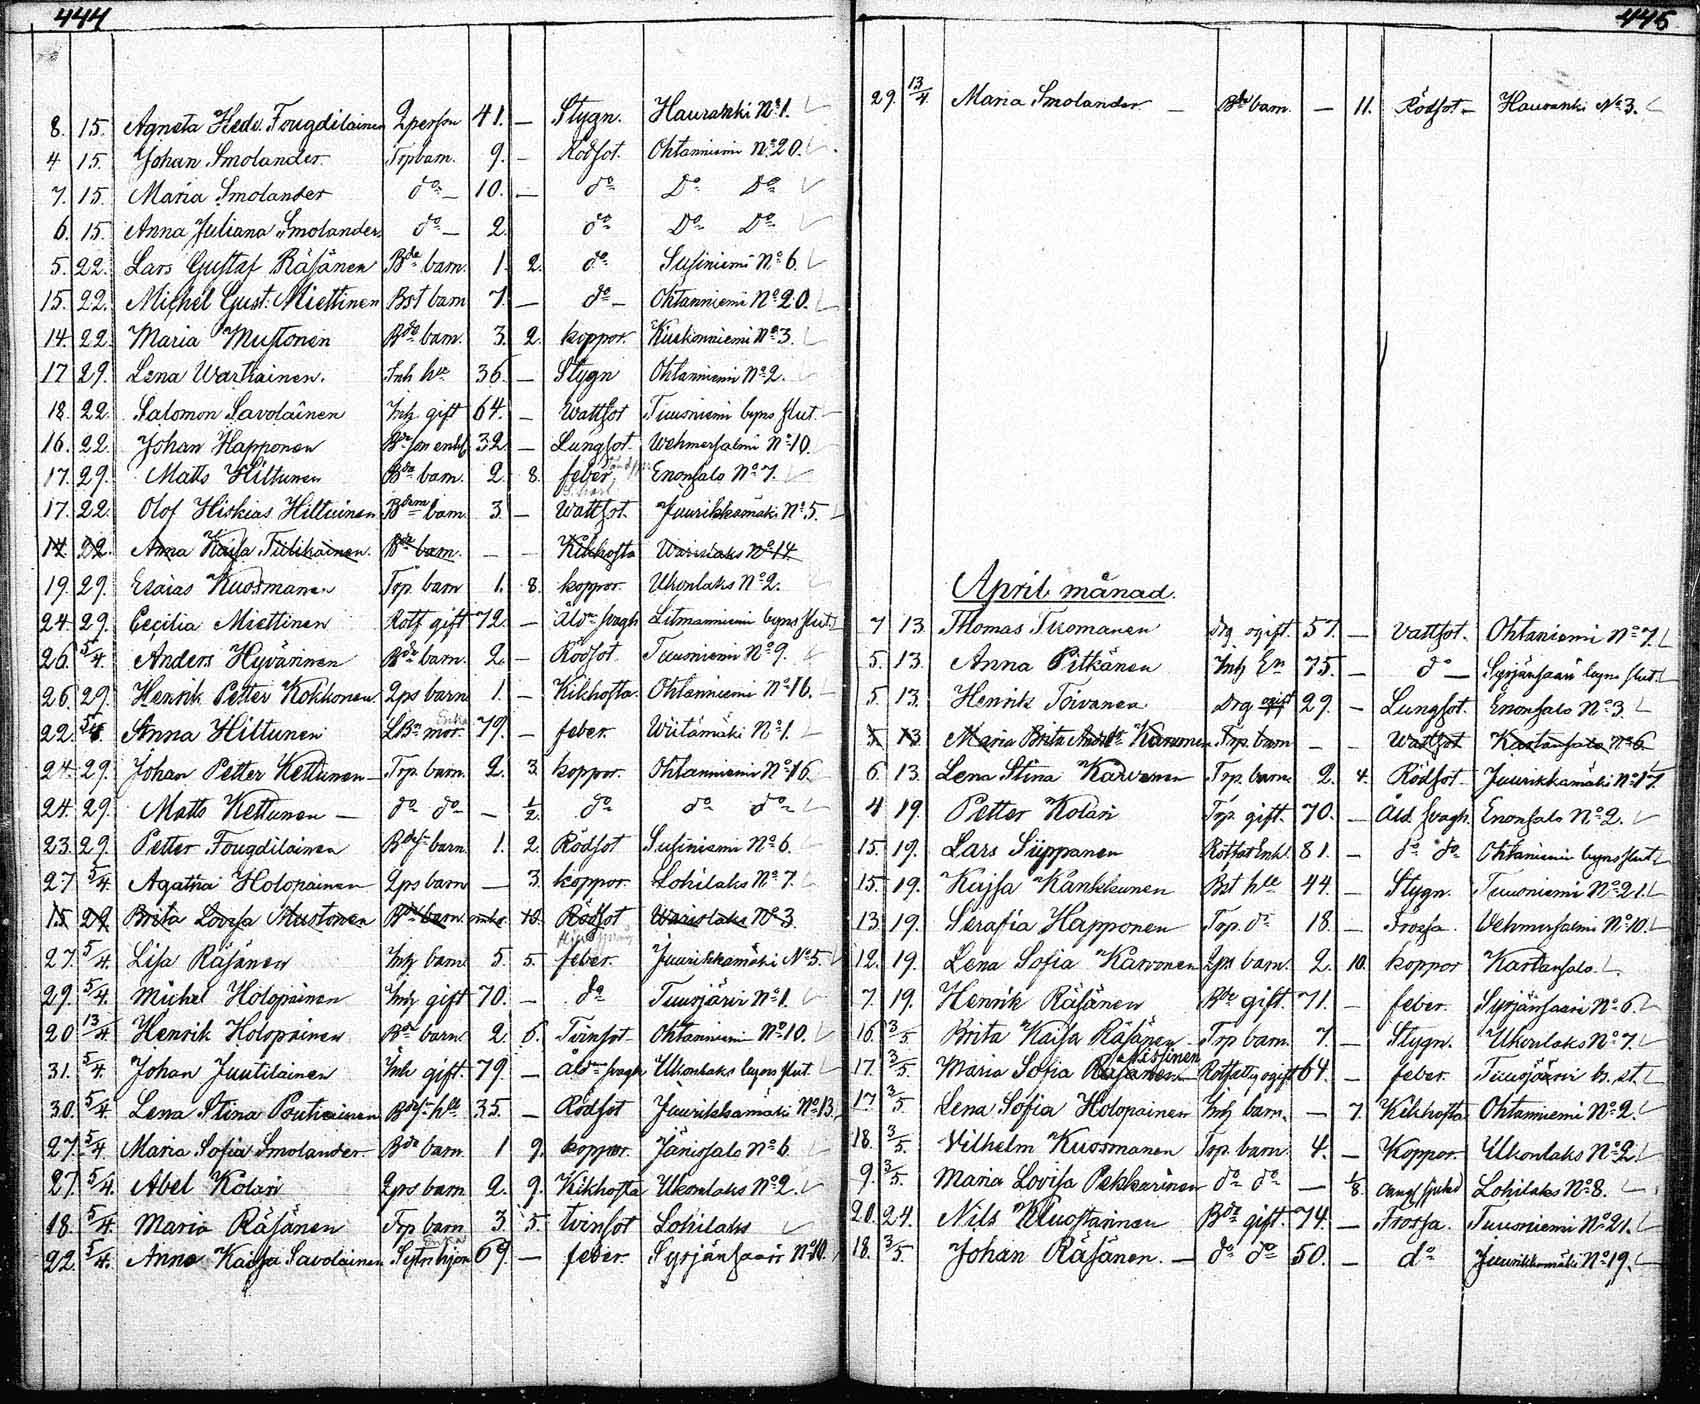 444
8. 15. Agneta Hedv. Fougdilainen Qperson 41. — Stygn. Hauranki No 1.
4 15. Johan Smolander Torpbarn. 9. — Rödsot. Ohtanniemi No 20.
7. 15. Maria Smolander do — 10. — do Do Do
6. 15. Anna Juliana Smolander do — 2. do Do Do
5. 22. Lars Gustaf Räsänen Bde barn. 1. 2. do Susiniemi No 6.
15. 22. Michel Gust. Miettinen Bst barn 7. — do — Ohtanniemi No 20.
14. 22. Maria Mustonen Bde barn. 3. 2. koppor. Kuckonniemi No 3.
17 29. Lena Wartiainen. Inh hu 36. — Stygn Ohtanniemi No 2.
18. 22. Salomon Savolainen Inh gift 64. — Wattsot Tuusniemi byns slut.
16. 22. Johan Happonen Bde son enkl. 32. — Lungsot. Wehmersalmi No 10.
17. 29. Matts Hiltunen Bde barn. 2. 8. feber Enonsalo No 7.
17. 22. Olof Hiskias Hiltuinen barn 3. — Wattsot. Juurikkamäki No 5.
14 22. Anna Kaisa Tiilikainen. Bde barn. — — Kikhosta No 14
19. 29. Esaias Kuosmanen Torp. barn 1. 8. koppor. Ukonlaks No 2.
24 29. Cecilia Miettinen Rotf gift 72. — Åldr svagh Litmanniemi byns slut.
26. 5/4. Anders Hyvärinen Bde barn. 2. — Rödsot. Tuusniemi No 9.
26. 29. Henrik Petter Kokkonen Qps barn 1. — Kikhosta. Ohtanniemi No 16.
22. 5/4. Anna Hiltunen LBn mor. Enka 79. — feber. Wiitamäki No 1.
24. 29. Johan Petter Kettunen — Torp. barn. 2. 3. koppor. Ohtanniemi No 16
24. 29. Matts Kettunen — do do — 1/2. do do do
23. 29. Petter Fougdilainen barn. 1. 2. Rödsot Susiniemi No 6.
27 5/4. Agatha Holopainen Qps barn — 3. koppor. Lohilaks No 7.
15 22. Brita Lovisa Mustonen Bde barn. 10. Rödsot No 3.
27. 5/4. Lisa Räsänen Inh barn 5. 5. feber. Juurikkamäki No 5.
29. 5/4. Michel Holopainen Inh gift 70. — do Tuusjärvi No 1.
20 13/4. Henrik Holopainen Bde barn 2. 6. Tvinsot. Ohtanniemi No 10.
31. 5/4. Johan Juutilainen Inh gift. 79. — Åldr svagh Ukonlaks byns slut.
30. 5/4. Lena Stina Poutiainen hu. 35. — Rödsot Juurikkamäki No 13.
27. 5/4. Maria Sofia Smolander Bde barn 1 9. koppor. Jänissalo No 6.
27. 5/4. Abel Kolari Qps barn 2. 9. Kikhosta Ukonlaks No 2.
18. 5/4. Maria Räsänen Torp barn 3. 5. Tvinsot Lohilaks
22. 5/4. Anna Kaisa Savolainen Enka 69. — feber. Syrjänsaari No 10.
445
29. 13/4. Maria Smolander — Bde barn. — 11. Rödsot — Hauranki No 3.
April månad.
7 13. Thomas Tiromanen Drg ogift. 57. — Vattsot. Ohtaniemi No 7.
5. 13. Anna Pitkänen Inh En 75. — do — Syrjänsaari byns slut.
5. 13. Henrik Toivanen Drg ogift 29. — Lungsot. Enonsalo No 3.
5. 13. Maria Brita Karvonen Torp. barn — — Wattsot Kartansalo No 6.
6. 13. Lena Stina Karvonen Torp. barn. 2. 4. Rödsot. Juurikkamäki No 17.
4 19. Petter Kolari Torp. gift. 70. — Åld. svagh. Enonsalo No 2.
15. 19. Lars Siippanen Enkl. 81. — do do Ohtaniemi byns slut.
15. 19. Kajsa Kankkunen Bst hu 44. — Stygn. Tuusniemi No 21.
13. 19. Serafia Happonen Torp. do 18. — Frossa. Wehmersalmi No 10.
12. 19. Lena Sofia Karvonen Qps barn. 2. 10. koppor Kartansalo.
7. 19. Henrik Räsänen gift. 71. — feber. Syrjänsaari No 6.
16. 3/5. Brita Kaisa Räsänen Torp barn. 7. — Stygn. Ukonlaks No 7.
17. 3/5. Maria Sofia Räsänen ogift 64. — feber. Tuusjärvi
17. 3/5. Lena Sofia Holopainen Inh barn. — 7. Kikhosta Ohtanniemi No 2.
18. 3/5. Vilhelm Kuosmanen Torp. barn. 4. — Koppor. Ukonlaks No 2.
9. 3/5. Maria Lovisa Pekkarinen do do — 1/8. Lohilaks No 8.
20. 24. Nils Kuostainen Bde gift. 74. — Frossa. Tuusniemi No 21.
18. 3/5. Johan Räsänen. — do do 50. — do Juurikkamäki No 19.